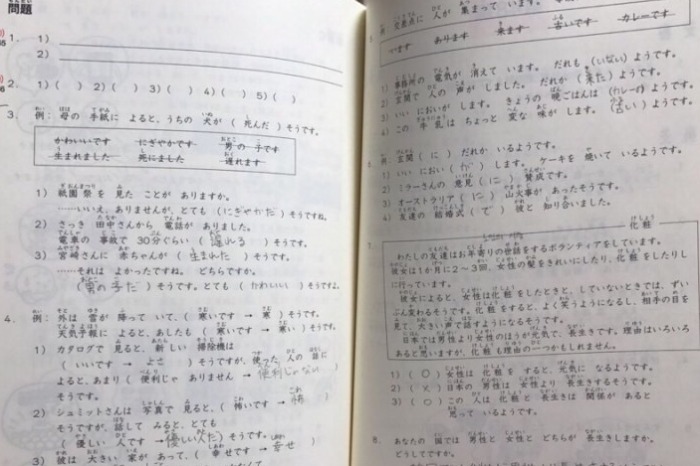 問題
1． 1）
2）
2． 1）（ ） 2）（ ） 3）（ ） 4）（ ） 5）（ ）
3． 例：母の 手紙に よると、うちの 犬が （ 死んだ ）そうです。
かわいいです にぎやかです 男の 子です
生まれました 死にました 遅れます
1） 祇園祭を 見た ことが ありますか。
……いいえ、ありませんが、とても （にぎやかだ ）そうですね。
2） さっき 田中さんから 電話が ありました。
電車の 事故で 30分ぐらい （ 遅れる ）そうです。
3） 宮崎さんに 赤ちゃんが （ 生まれた ）そうです。
……それは よかったですね。どちらですか。
（男の子だ ）そうです。とても（ かわいい ）そうですよ。
4． 例：外は 雪が 降って いて、（ 寒いです → 寒 ）そうです。
天気予報に よると、あしたも （ 寒いです → 寒い ）そうです。
1） カタログで 見ると、新しい 掃除機は
（ いいです → よさ ）そうですが、使った 人の 話に
よると、あまり（ 便利じゃ ありません → 便利じゃない ）
そうです。
2） シュミットさんは 写真で 見ると、（ 怖いです → 怖 ）
そうですが、話して みると、とても
（ 優しい 人です → 優しい人だ ）そうです。
3） 彼は 大きい 家が あって、（ 幸せです → 幸せ
例 交差点に 人が 集まって います。
います あります 来ます 古いです カレーです
1） 事務所の 電気が 消えて います。だれも （いない）ようです。
2） 玄関で 人の 声が しました。だれか （ 来た ）ようです。
3） いい においが します。きょうの 晩ごはんは（カレーの）ようです。
4） この 牛乳は ちょっと 変な 味が します。（古い ）ようです。
例 玄関（ に ）だれか いるようです。
1） いい におい（ が ）します。ケーキを 焼いて いるようです。
2） ミラーさんの 意見（ に ）賛成です。
3） オーストラリア（ に ）山火事が あったそうです。
4） 友達の 結婚式（ で ）彼と 知り合いました。
7．
化粧
わたしの友達はお年寄りの世話をするボランティアをしています。
彼女は1か月に2〜3回、女性の髪をきれいにしたり、化粧をしたりし
に行っています。
彼女によると、女性は化粧をしたときと、していないときでは、ずい
ぶん変わるそうです。化粧をすると、よく笑うようになるし、相手の目を
見て、大きい声で話すようになるそうです。
日本では男性より女性のほうが元気で、長生きです。理由はいろいろ
あると思いますが、化粧も理由の一つかもしれません。
1）（ ○ ）女性は 化粧を すると、元気に なるようです。
2）（ × ）日本の 男性は 女性より 長生きするそうです。
3）（ ○ ）この 人は 化粧と 長生きは 関係が あると
思って いるようです。
8． あなたの 国では 男性と 女性と どちらが 長生きしますか。
どうしてですか。